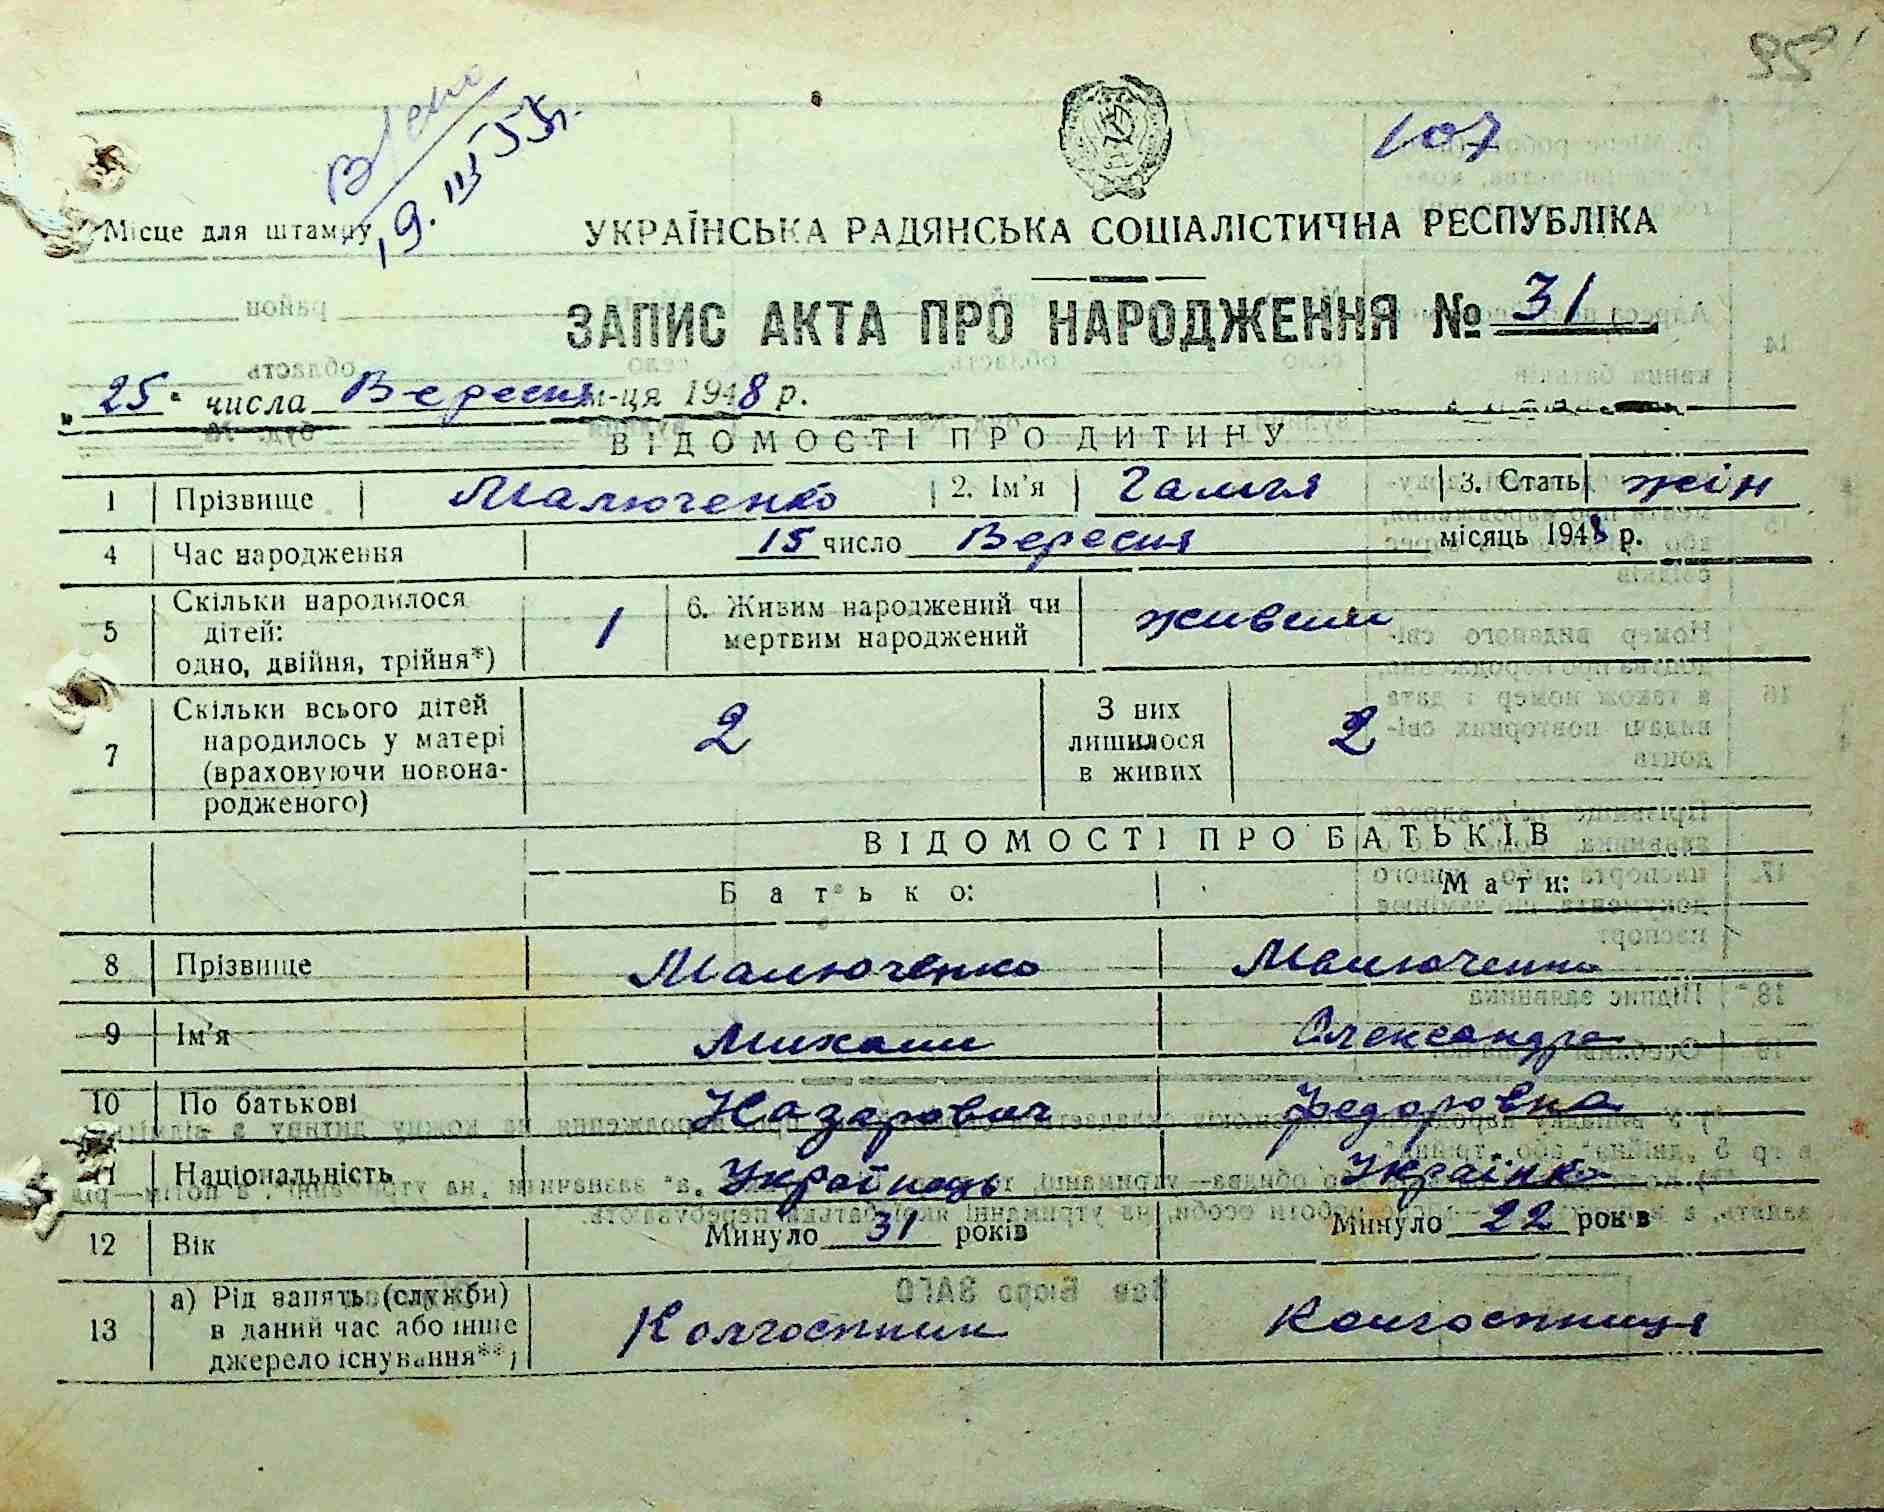 19.III 53р.
107
Місце для штампу
УКРАЇНСЬКА РАДЯНСЬКА СОЦІАЛІСТИЧНА РЕСПУБЛІКА
ЗАПИС АКТА ПРО НАРОДЖЕННЯ № 31
„25" числа Вересня м-ця 1948 р.
ВІДОМОСТІ ПРО ДИТИНУ
1 Прізвище Малюченко 2. Ім'я Галига 3. Стать жін
4 Час народження 15 число Вересня місяць 1948 р.
5 Скільки народилося дітей: одно, двійня, трійня*) 1 6. Живим народжений чи мертвим народжений живим
7 Скільки всього дітей народилось у матері (враховуючи новонародженого) 2 З них лишилося в живих 2
ВІДОМОСТІ ПРО БАТЬКІВ
Батько: Мати:
8 Прізвище Малюченко Малюченко
9 Ім'я Михаил Олександра
10 По батькові Назарович Федоровна
11 Національність Українець Українка
12 Вік Минуло 31 років Минуло 22 років
13 а) Рід занять (служби) в даний час або інше джерело існування**) Колгоспник Колгоспниця